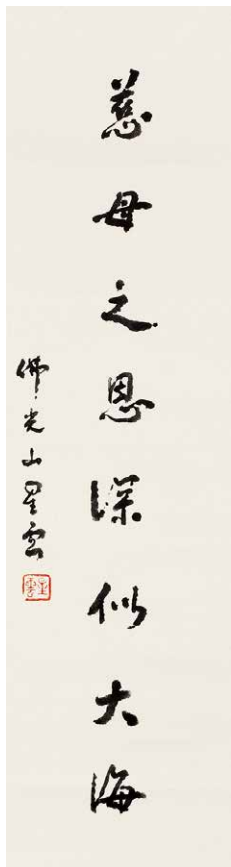 慈母之恩深似大海
佛光山星雲
星雲